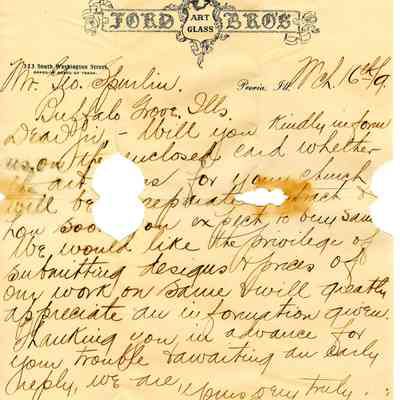 FORD BRO'S
ART
GLASS
323 South Washington Street,
Peoria, Ill. Mch 16th/9
Mr. Geo. Spurlin.
Buffalo Grove. Ills.
Dear Sir, - Will you kindly inform
us, on the enclosed card whether
the art for your church
will be separate contract &
how soon you expect to buy same
We would like the privilege of
submitting designs & prices of
our work on same & will greatly
appreciate an information given.
Thanking you in advance for
your trouble & awaiting an early
reply, we are,
Yours very truly.